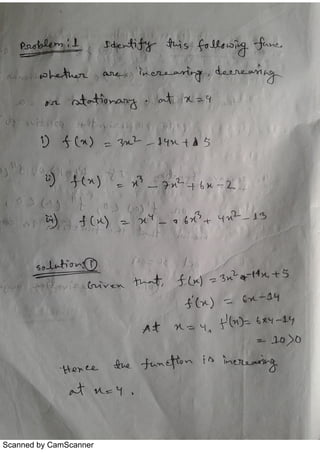 Problem: 1 Identify this following func.
whether are increasing, decreasing
or stationary. at x = 4
i) f(x) = 3x² - 14x + 5
ii) f(x) = x³ - 7x² + 6x - 2
iii) f(x) = x⁴ - 6x³ + 4x² - 13
solution: ①
Given that, f(x) = 3x² - 14x + 5
f'(x) = 6x - 14
At x = 4, f'(x) = 6x4 - 14
= 10 > 0
Hence the function is increasing
at x = 4.
Scanned by CamScanner